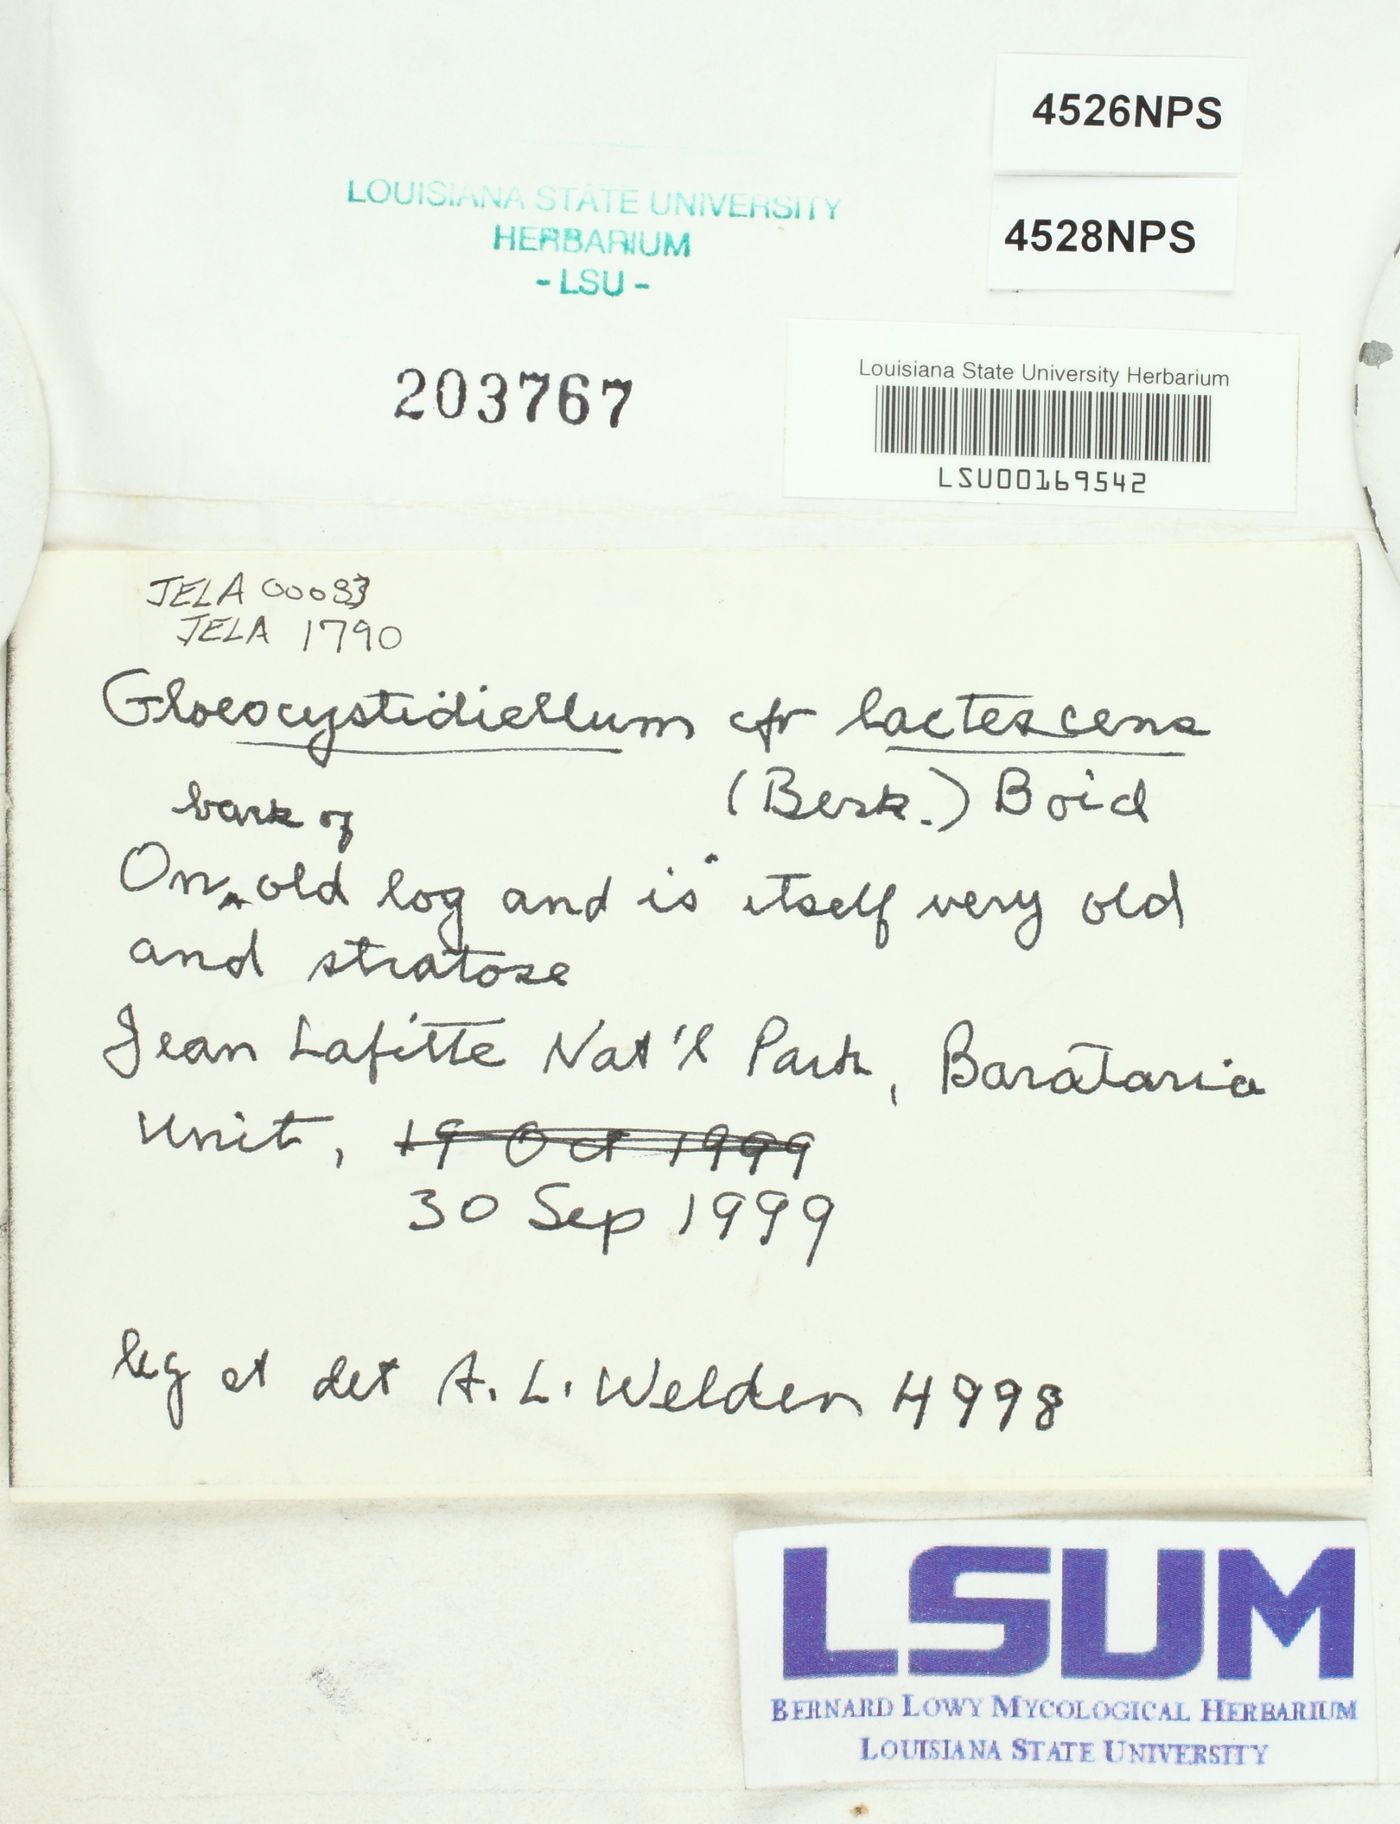 4526NPS
4528NPS
LOUISIANA STATE UNIVERSITY
HERBARIUM
- LSU -
203767
Louisiana State University Herbarium
LSU00169542
JELA 00083
JELA 1790
Gloeocystidiellum cfr lactescens
(Berk.) Boid
bark of
On ^ old log and is itself very old
and stratose
Jean Lafitte Nat'l Park, Barataria
Unit, 19 Oct 1999
30 Sep 1999
leg et det A. L. Welden 4998
LSUM
BERNARD LOWY MYCOLOGICAL HERBARIUM
LOUISIANA STATE UNIVERSITY